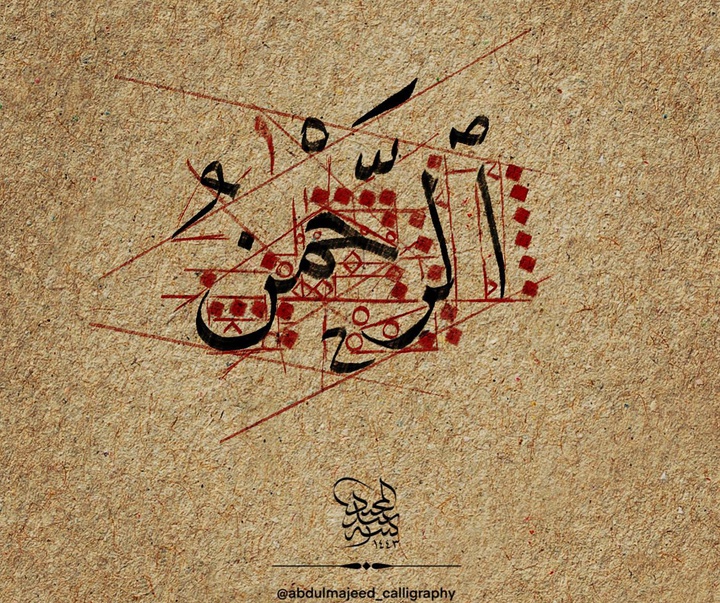 ٱلرَّحْمٰنُ
كتبه عبد المجيد
١٤٤٣
@abdulmajeed_calligraphy